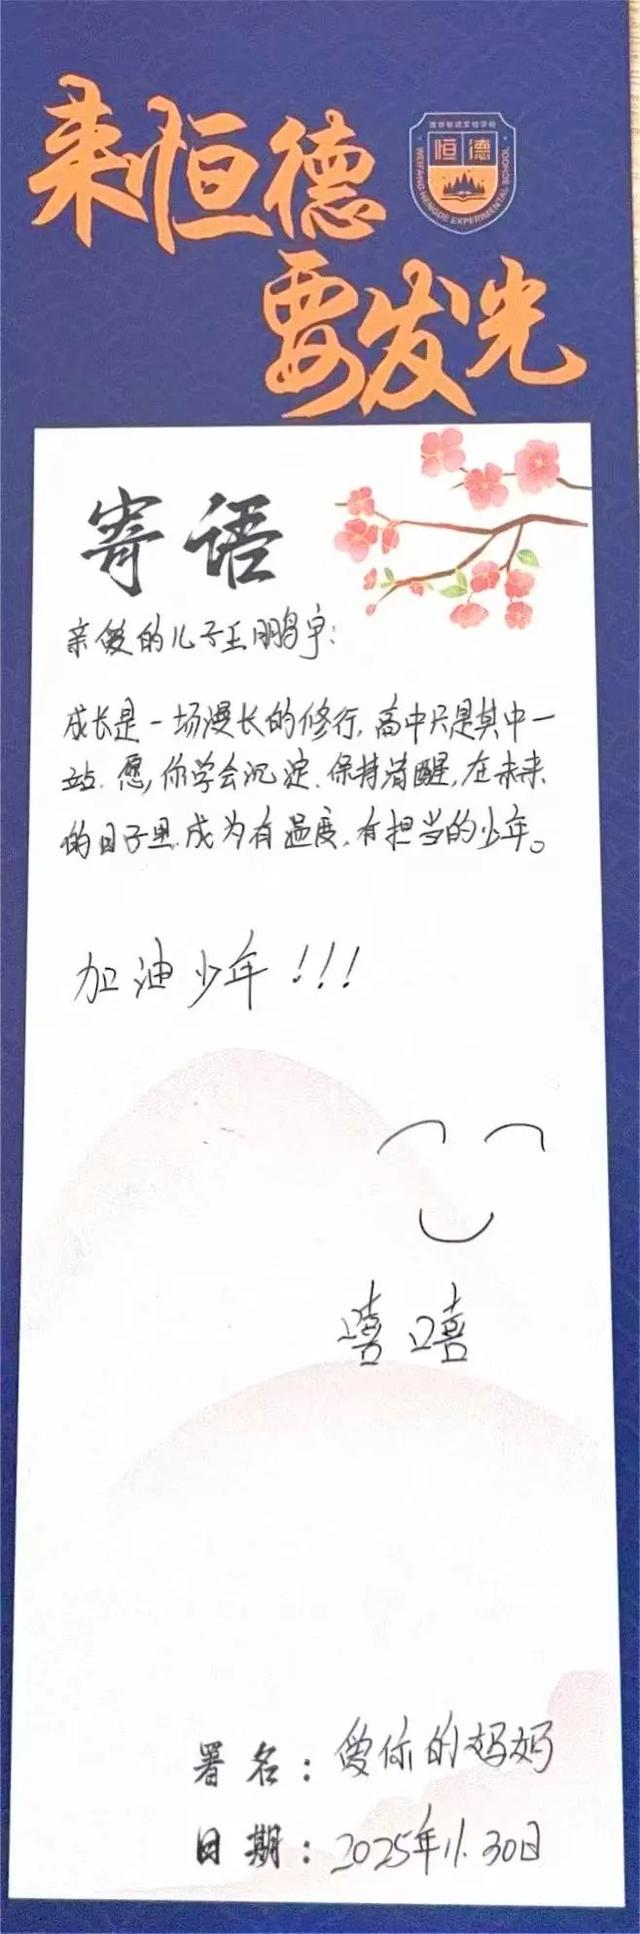 来恒德
恒 德
WEIFANG HENGDE EXPERIMENTAL SCHOOL
要发光
寄语
亲爱的儿子王鹏宇:
成长是一场漫长的修行,高中只是其中一
站.愿,你学会沉淀.保持清醒,在未来
的日子里.成为有温度,有担当的少年。
加油少年!!!
嘻嘻
署名:爱你的妈妈
日期:2025年11.30日